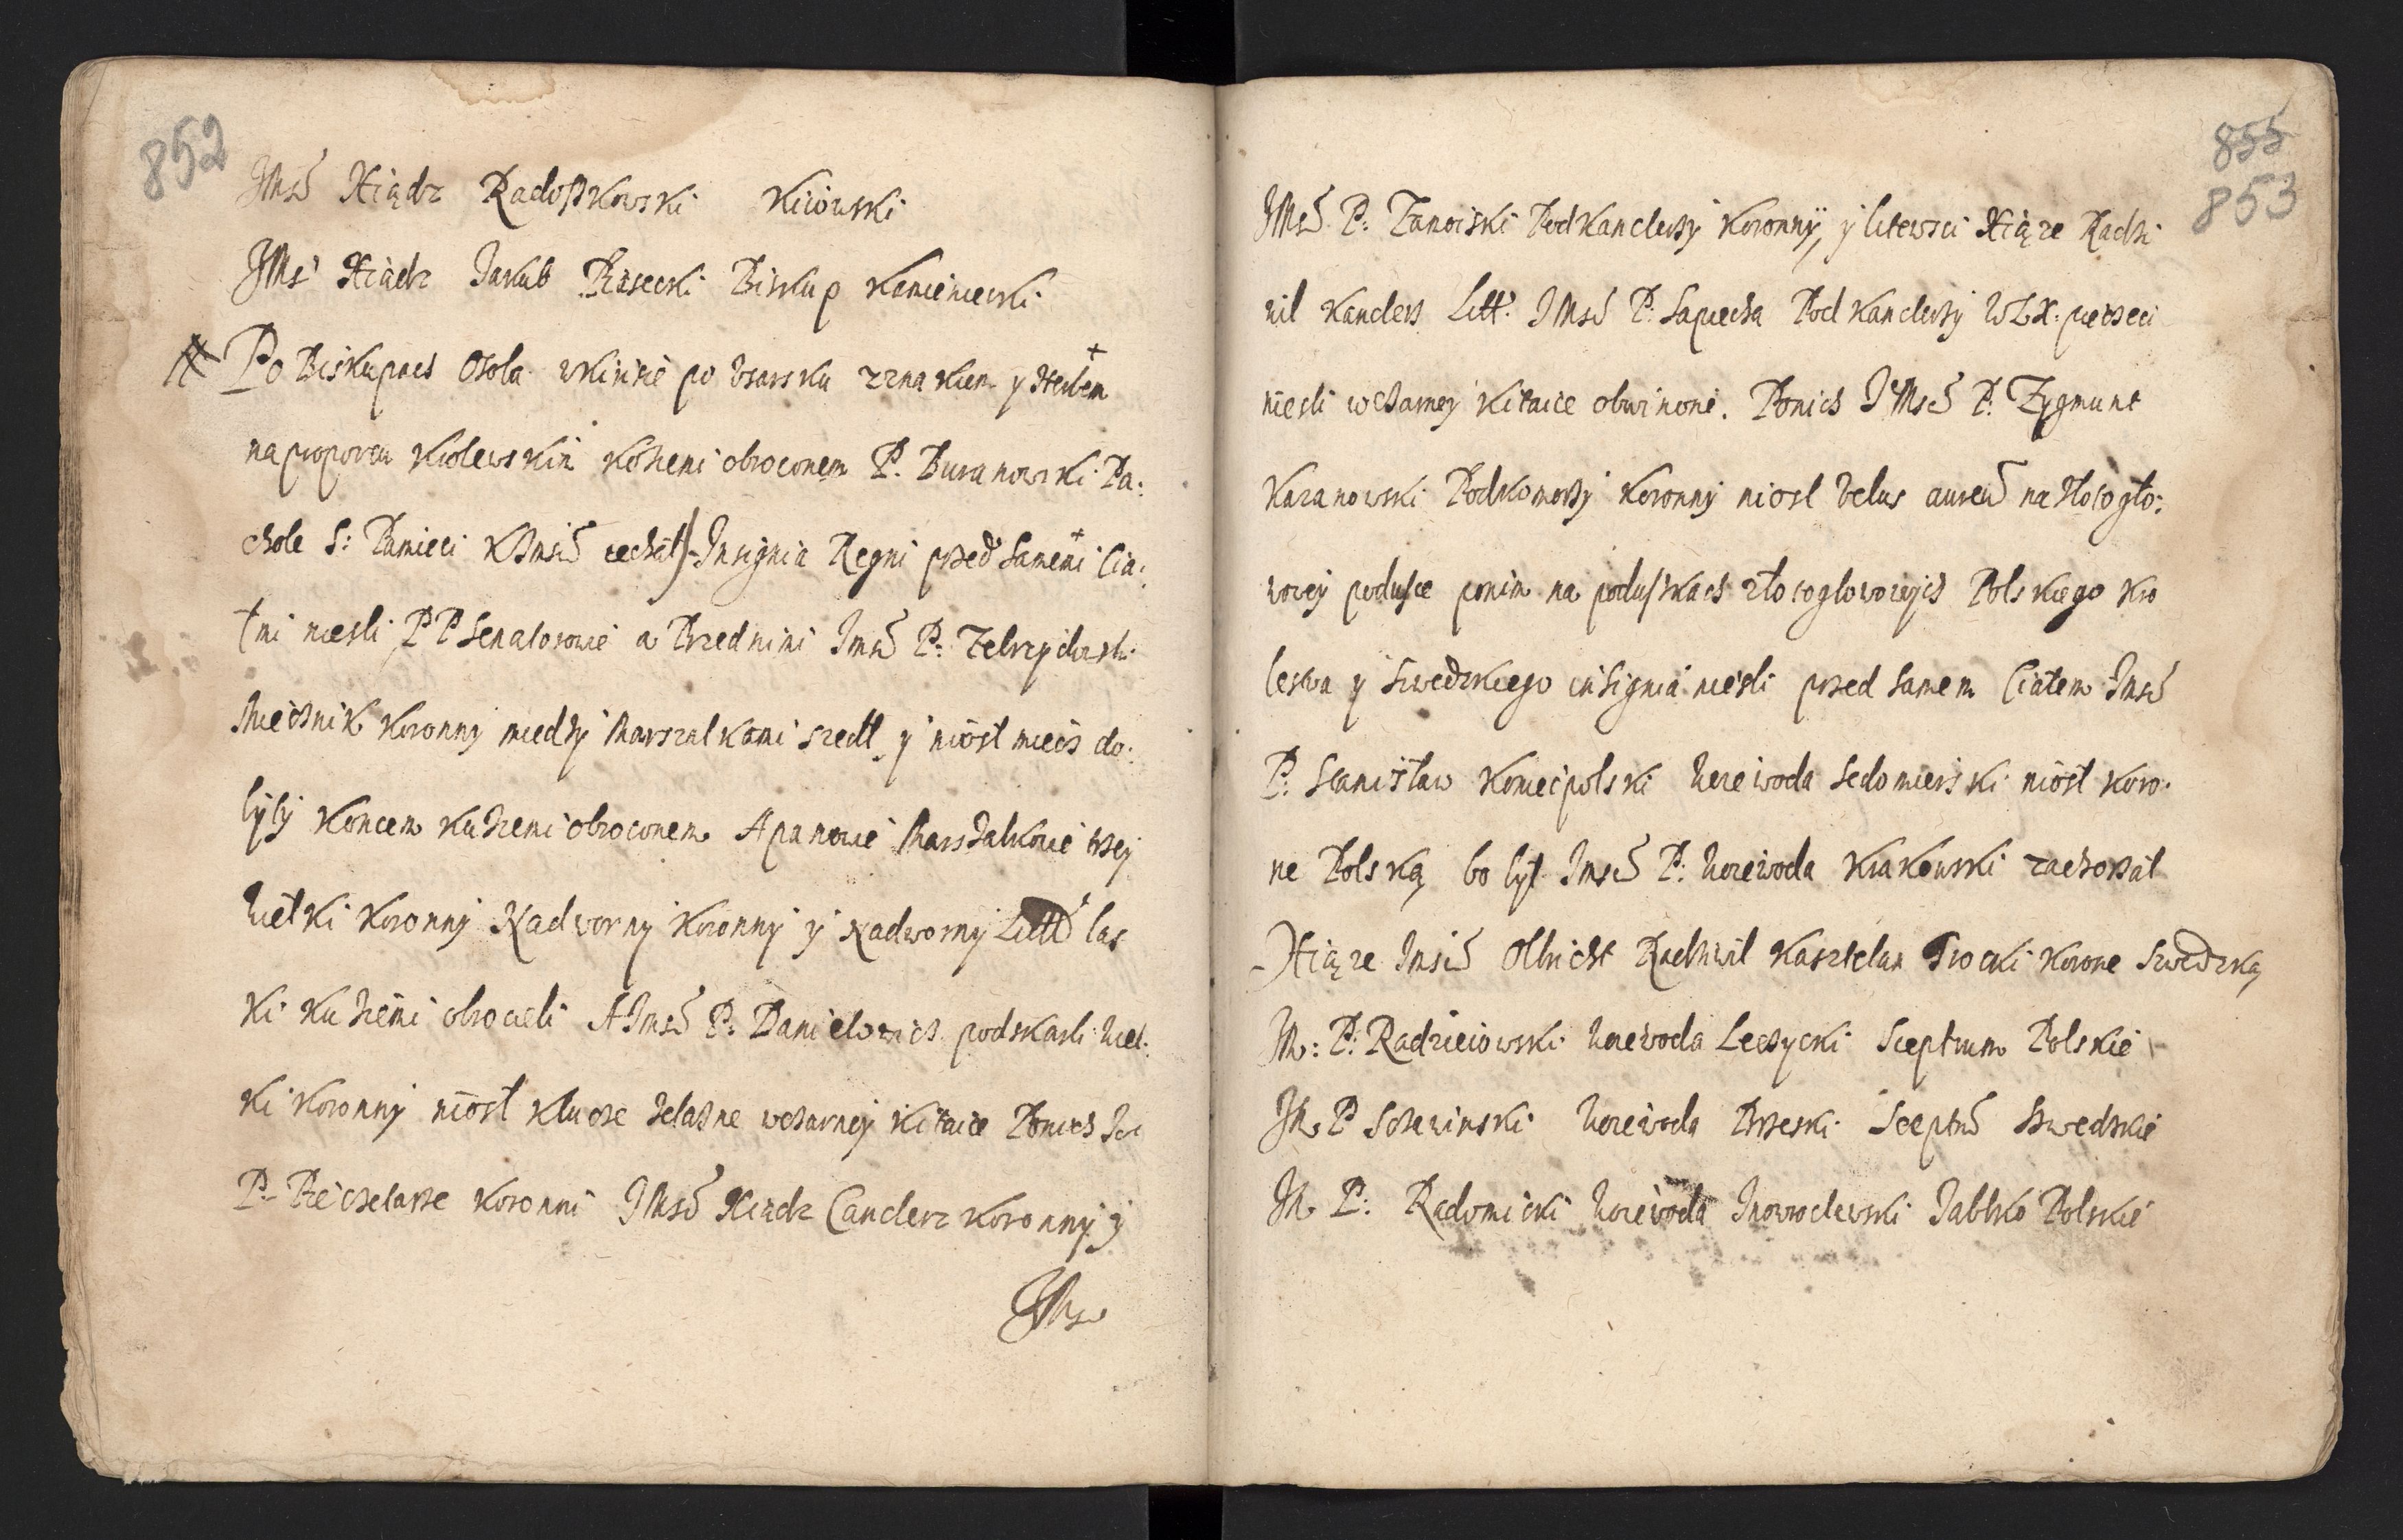 852
JMsć Xiądz Radoszkowski Kiiowski
JMsć Xiądz Jakub Piasecki Biskup Kamieniecki
Po Biskupach Osoba wkirisie po Usarsku zznakiem y Herbem
na proporcu Krolewskim koziemi obroconem P. Buranowski Pa:
chole S: Pamieci KJmści iechał) Insignia Regni przed Samemi Cia:
łmi niesli PP Senatorowie a Przednimi Jmsć P: Zebrzydowski
Miecznik Koronny miedzy Marszalkami szedł y niosł miecz do:
były koncem kuziemi obroconem A panowie Marszalkowie trzej
Wielki Koronny Nadworny Koronny y Nadworny Litt las
ki kuziemi obrocieli A Jmsć P: Danielowicz podskarbi Wiel:
ki Koronny niosł klucze zelazne wczarney kitaice Ponich
P. Pieczetarze Koronni JMsć Xiadz Canclerz Koronny y
JMsc
855
853
JMsć P: Zamoiski Podkanclerzy Koronny, y litewsci Xiąze Radzi
wil Kanclerz Litt: JMsć P: Sapiecha Podkanclerzy WLX: pieczeci
niesli wczarney kitaice obwinone. Ponich JMsć P: Zygmunt
Kazanowski Podkomorzy Koronny niosl Velus aureũ na złotogło:
wowey podusce ponim na poduszkach złotoglowowych Polskiego Kro
lestwa y Szwedzkiego insignia niesli przed samem Ciałem Jmsć
P. Stanisław Koniecpolski Woiewoda Sedomierski niosł koro:
ne Polską bo był Jmsć P: Woiewoda Krakowski zachorzał
Xiąze Jmsć Olbricht Radziwil Kasztelan Trocki Korone Szwedzką
JM: P: Radzieiowski Woiewoda Leczycki Sceptrum Polskie
JM. P Sczawinski Woiewoda Brzeski Sceptrũ Szwedzkie
JM. P: Radomicki Woiewoda Inowroclawski Jablko Polskie